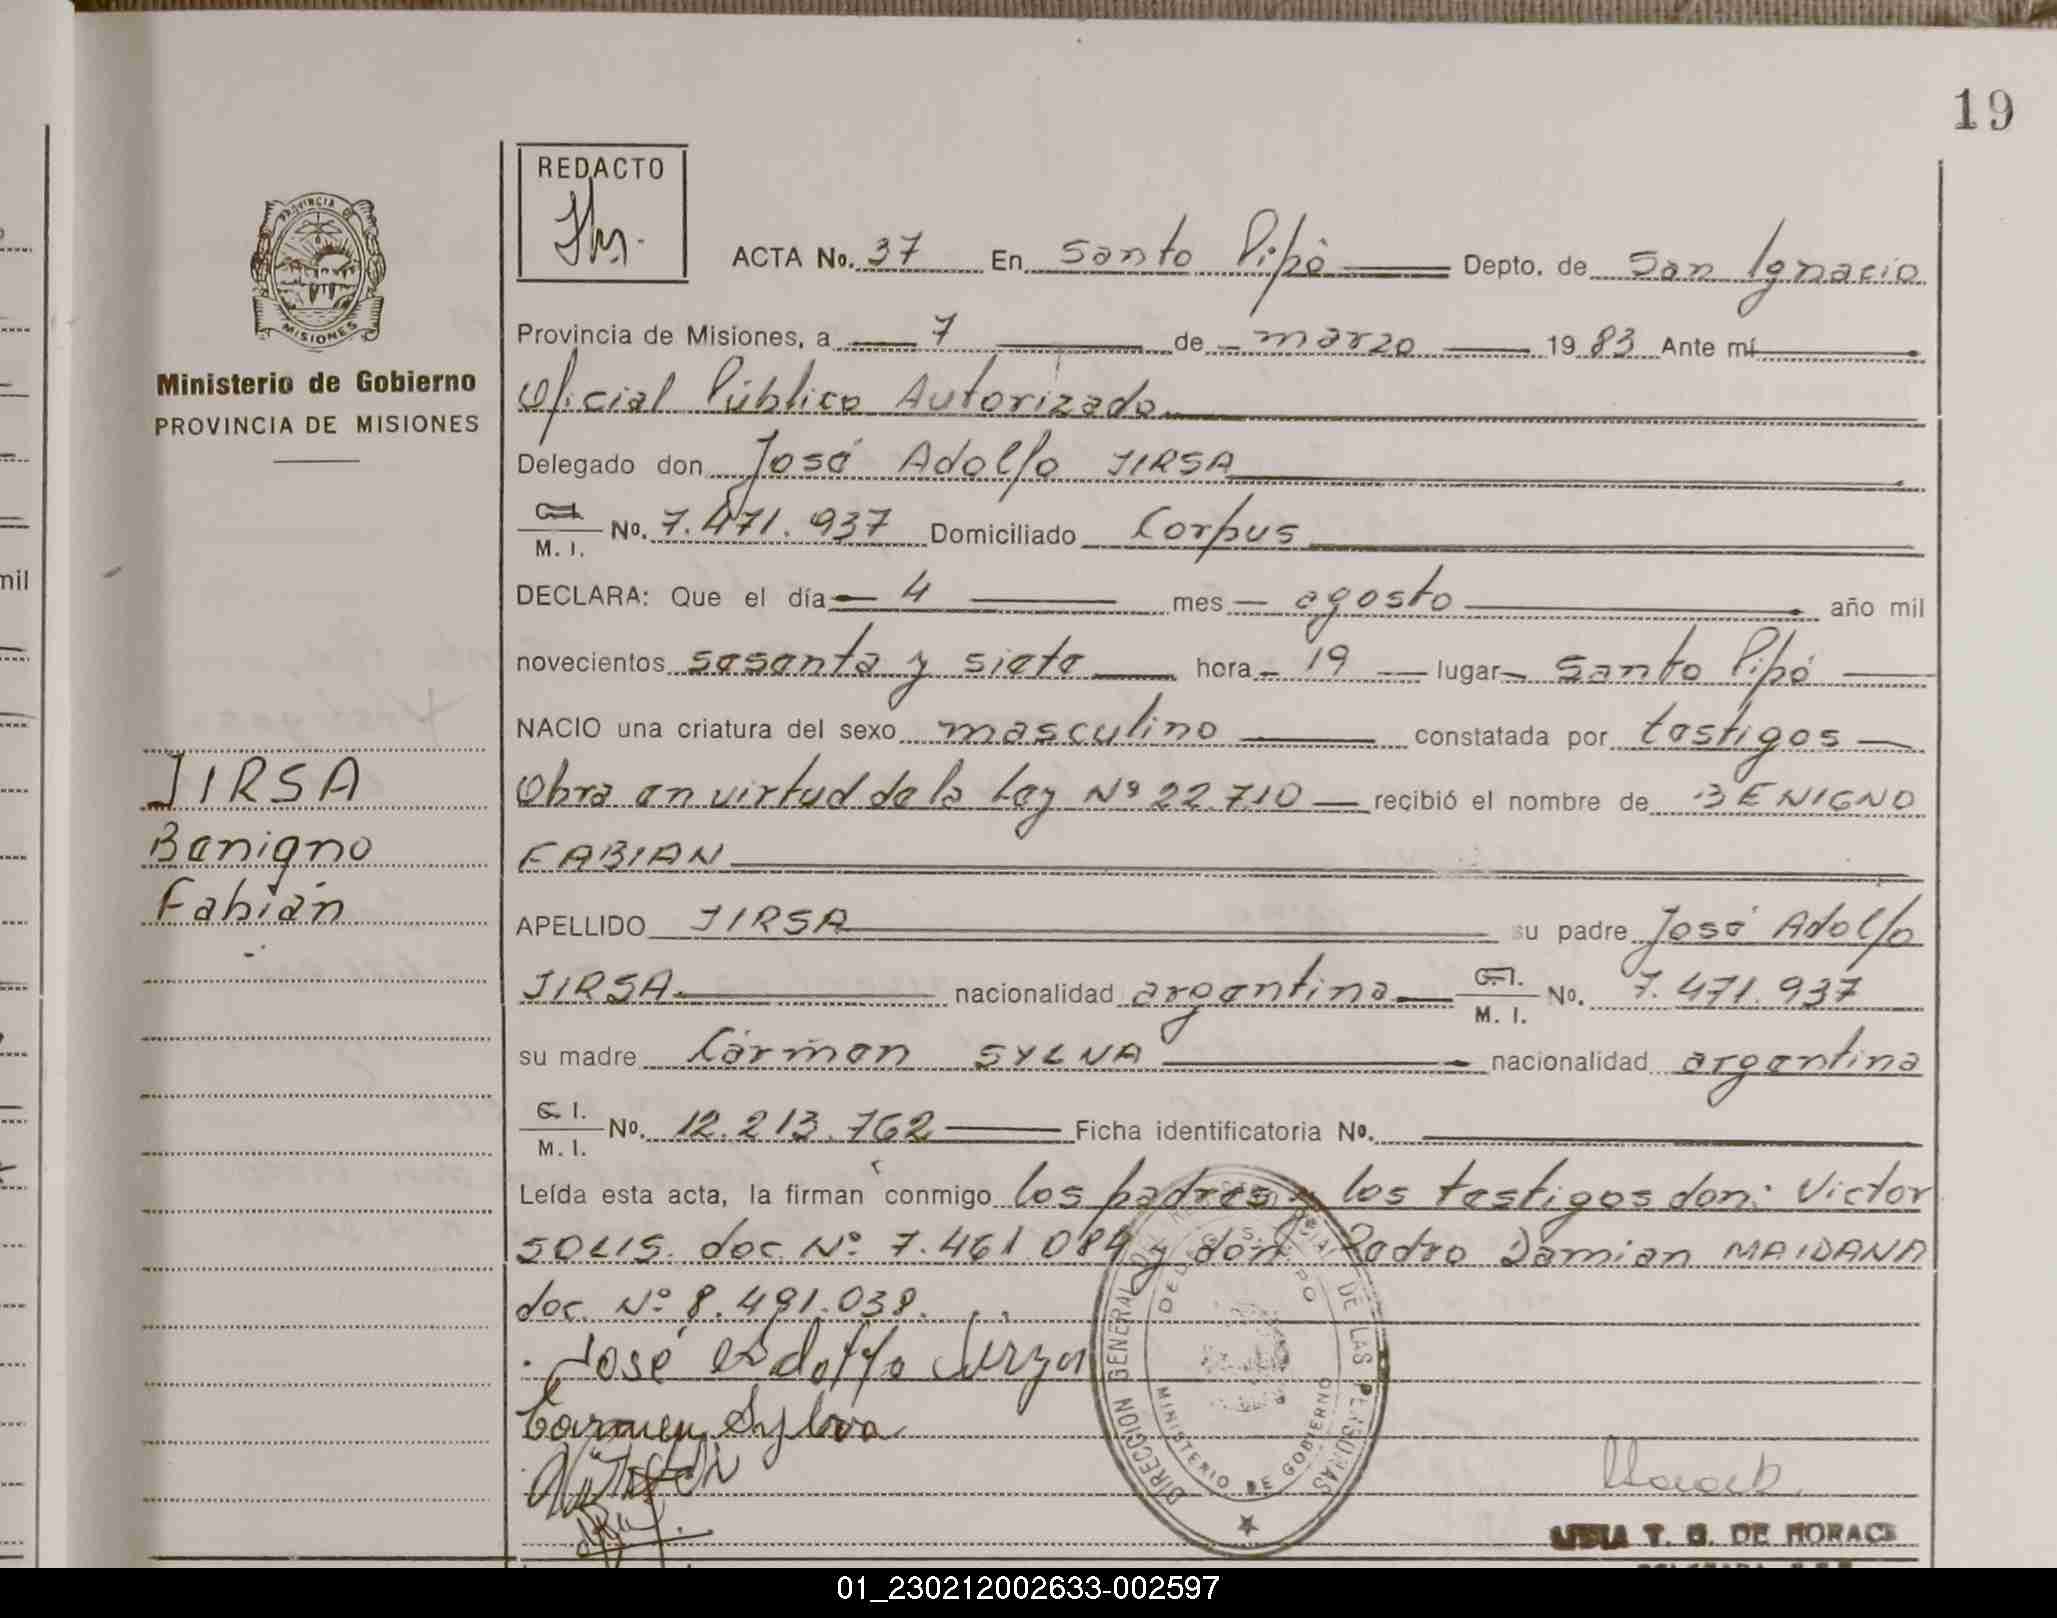 19
REDACTO
PROVINCIA DE
MISIONES
Ministerio de Gobierno
PROVINCIA DE MISIONES
ACTA No. 37 En Santo Pipó Depto. de San Ignacio
Provincia de Misiones, a 7 de marzo 1983 Ante mí
Oficial Público Autorizado
Delegado don José Adolfo JIRSA
C.I. M. I. No. 7.471.937 Domiciliado Corpus
DECLARA: Que el día 4 mes agosto año mil
novecientos sesenta y siete hora 19 lugar Santo Pipó
NACIO una criatura del sexo masculino constatada por testigos
Obra en virtud de la Ley Nº 22.710 recibió el nombre de BENIGNO
FABIAN
JIRSA
Benigno
Fabián
APELLIDO JIRSA su padre José Adolfo
JIRSA nacionalidad argentina C.I. M. I. No. 7.471.937
su madre Cármen SYLVA nacionalidad argentina
C. I. M. I. No. 12.213.762 Ficha identificatoria No.
Leída esta acta, la firman conmigo los padres y los testigos don: Victor
SOLIS. doc. Nº 7.461.084 y don Pedro Damian MAIDANA
doc. Nº 8.491.038.
José Adolfo Jirza
Carmen Sylva
DIRECCION GENERAL DE LAS PERSONAS
MINISTERIO DE GOBIERNO
T. G. DE HORACK
mil
01_230212002633-002597